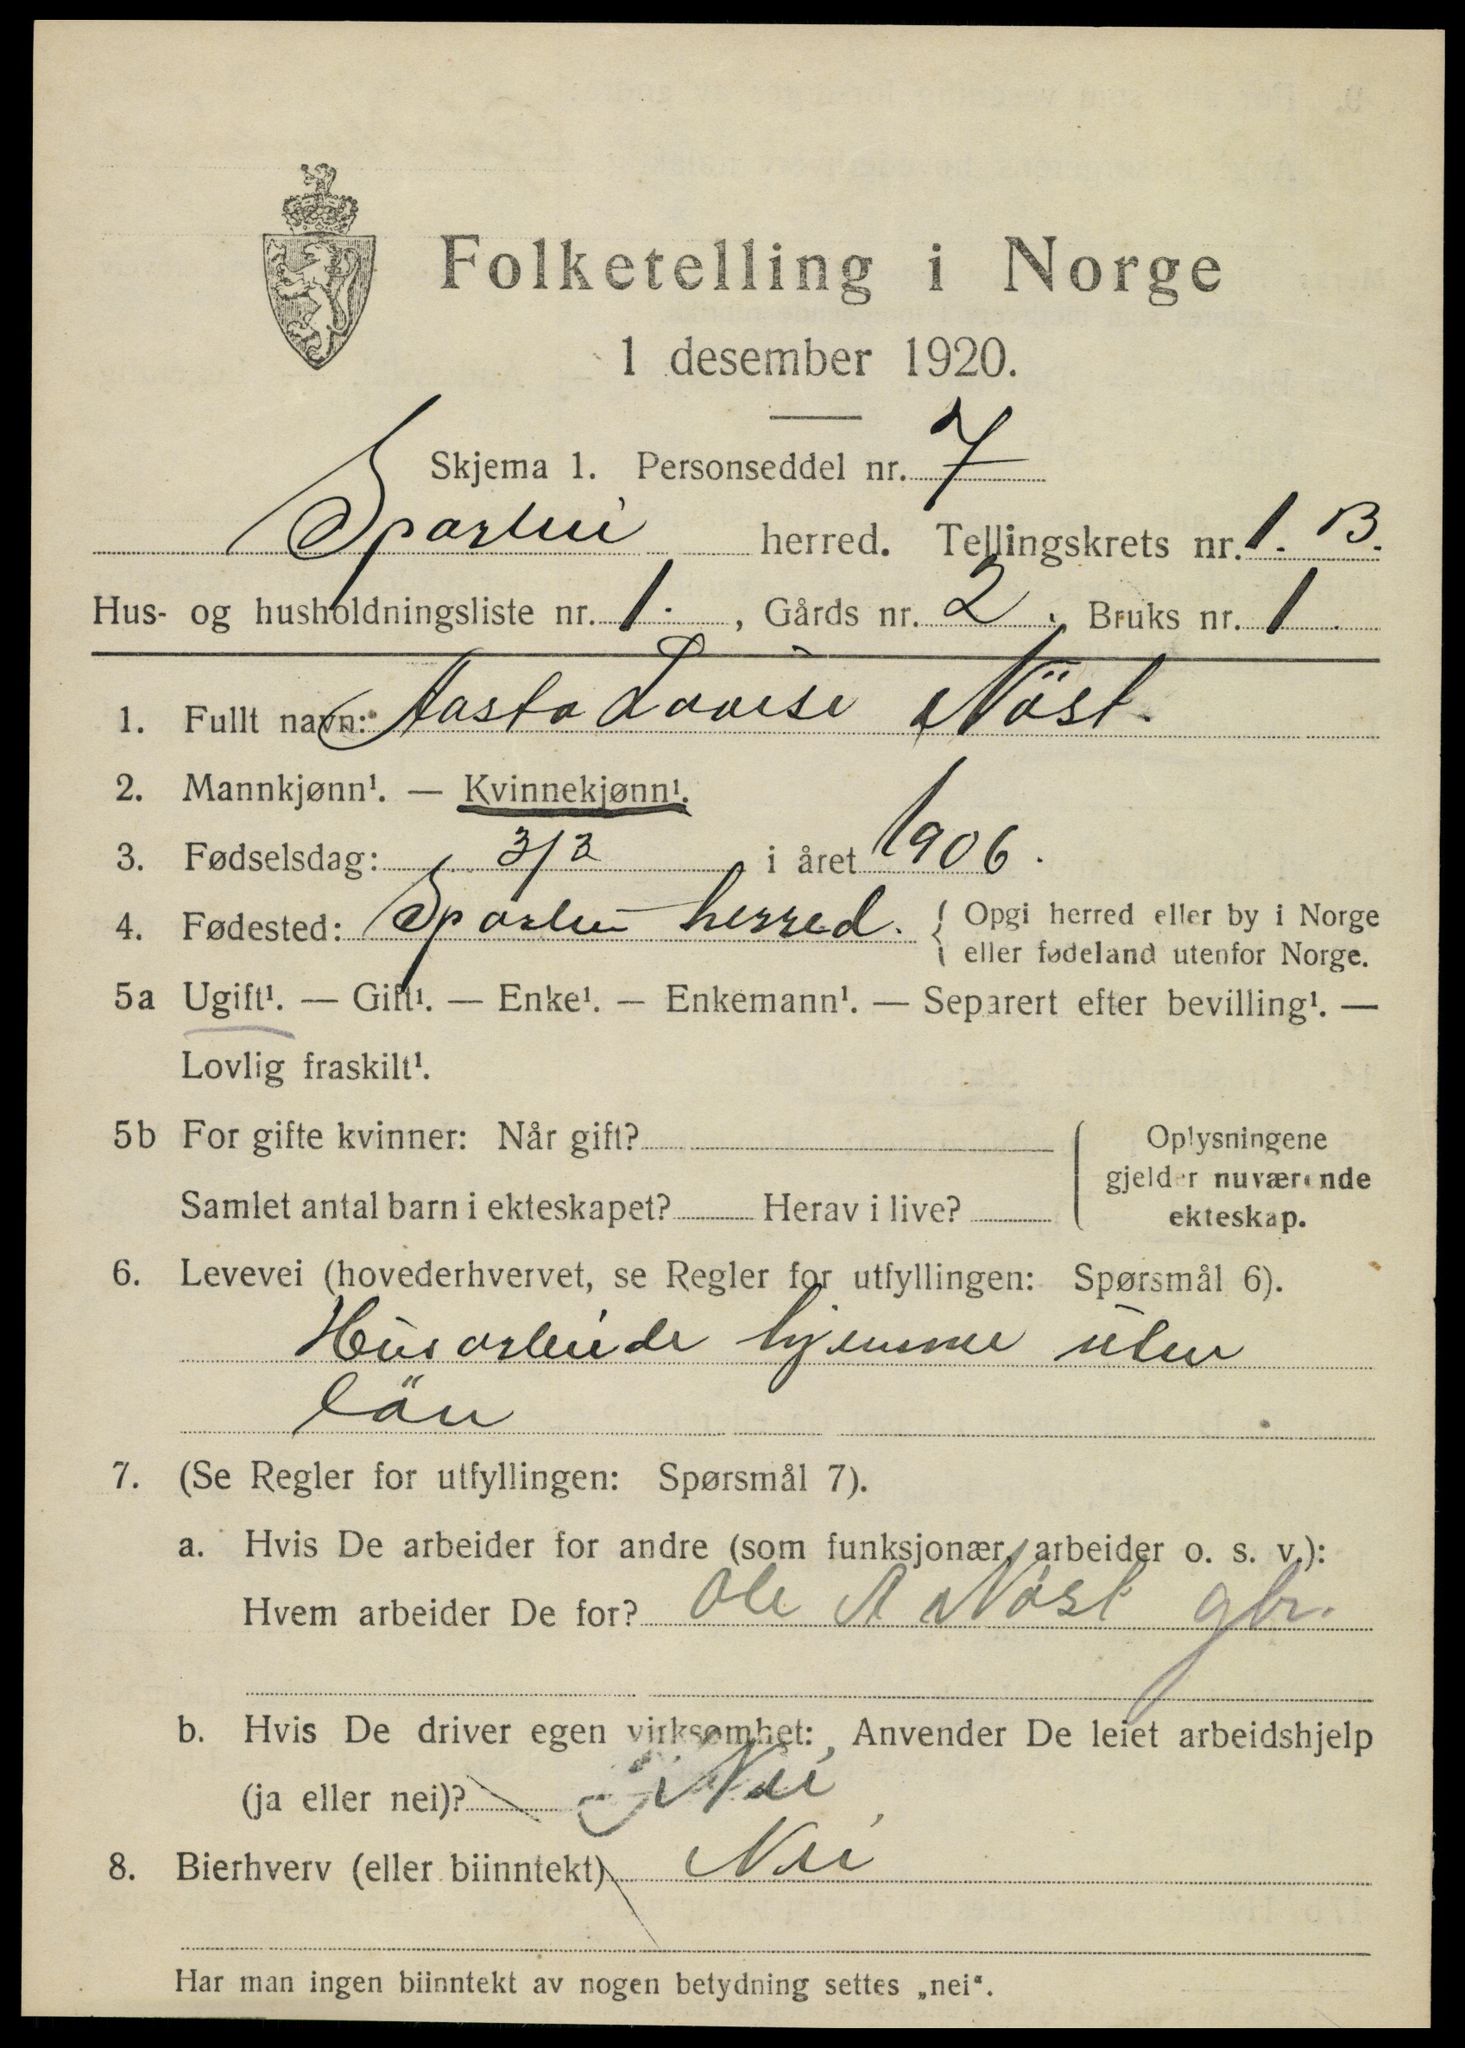 Folketelling i Norge
1 desember 1920.
Skjema 1. Personseddel nr. 7
Sparbu herred. Tellingskrets nr. 1. B.
Hus- og husholdningsliste nr. 1. , Gårds nr. 2. Bruks nr. 1.
1. Fullt navn: Aasta Lovise Nöst.
2. Mannkjønn¹. — Kvinnekjønn¹.
3. Fødselsdag: 3/3 i året 1906.
4. Fødested: Sparbu herred. { Opgi herred eller by i Norge
eller fødeland utenfor Norge.
5a Ugift¹. — Gift¹. — Enke¹. — Enkemann¹. — Separert efter bevilling¹. —
Lovlig fraskilt¹.
5b For gifte kvinner: Når gift?
Samlet antal barn i ekteskapet? Herav i live?
Oplysningene
gjelder nuværende
ekteskap.
6. Levevei (hovederhvervet, se Regler for utfyllingen: Spørsmål 6).
Husarbeide hjemme uten
lön
7. (Se Regler for utfyllingen: Spørsmål 7).
a. Hvis De arbeider for andre (som funksjonær, arbeider o. s. v.):
Hvem arbeider De for? Ole A Nöst gbr.
b. Hvis De driver egen virksomhet: Anvender De leiet arbeidshjelp
(ja eller nei)? Nei
8. Bierhverv (eller biinntekt) Nei
Har man ingen biinntekt av nogen betydning settes „nei“.